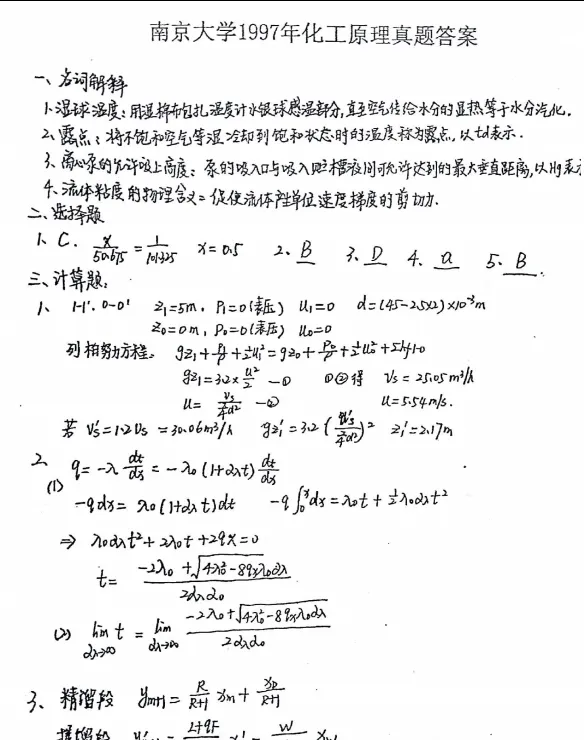 南京大学1997年化工原理真题答案
一、名词解释
1.湿球温度：用湿棉布包扎温度计水银球感温部分,直至空气传给水分的显热等于水分汽化.
2、露点：将不饱和空气等湿冷却到饱和状态时的温度称为露点,以td表示.
3、离心泵的允许吸上高度：泵的吸入口与吸入贮槽液间可允许达到的最大垂直距离,以Hg表示
4、流体粘度的物理含义=促使流体产生单位速度梯度的剪切力.
二、选择题
1、C. x/50.675=1/101.325 x=0.5 2、B 3、D 4、a 5、B.
三、计算题：
1、 1-1'. 0-0' z₁=5m, P₁=0(表压) u₁=0 d=(45-2.5×2)×10⁻³m
z₀=0m, P₀=0(表压) u₀=0
列柏努力方程: gz₁+P₁/ρ+½u₁²=gz₀+P₀/ρ+½u₀²+Σhf1-0
gz₁=3.2×u²/2 —① ①②得 Vs=25.05m³/h
u=Vs/(π/4 d²) —② u=5.54m/s.
若Vs'=1.2Vs=30.06m³/h z₁'=2.17m
2、 q=-λ dt/dx=-λ₀(1+αλt) dt/dx
(1) -qdx=λ₀(1+αλt)dt -q∫₀ˣdx=λ₀t+½λ₀αλt²
⇒ λ₀αλt²+2λ₀t+2qx=0
t=(-2λ₀+√(4λ₀²-8qxλ₀αλ))/(2αλλ₀)
(2) lim t = lim (-2λ₀+√(4λ₀²-8qxλ₀αλ))/(2αλλ₀)
αλ→∞ αλ→∞
3、精馏段 ym+1=R/(R+1) xm+xD/(R+1)
提馏段